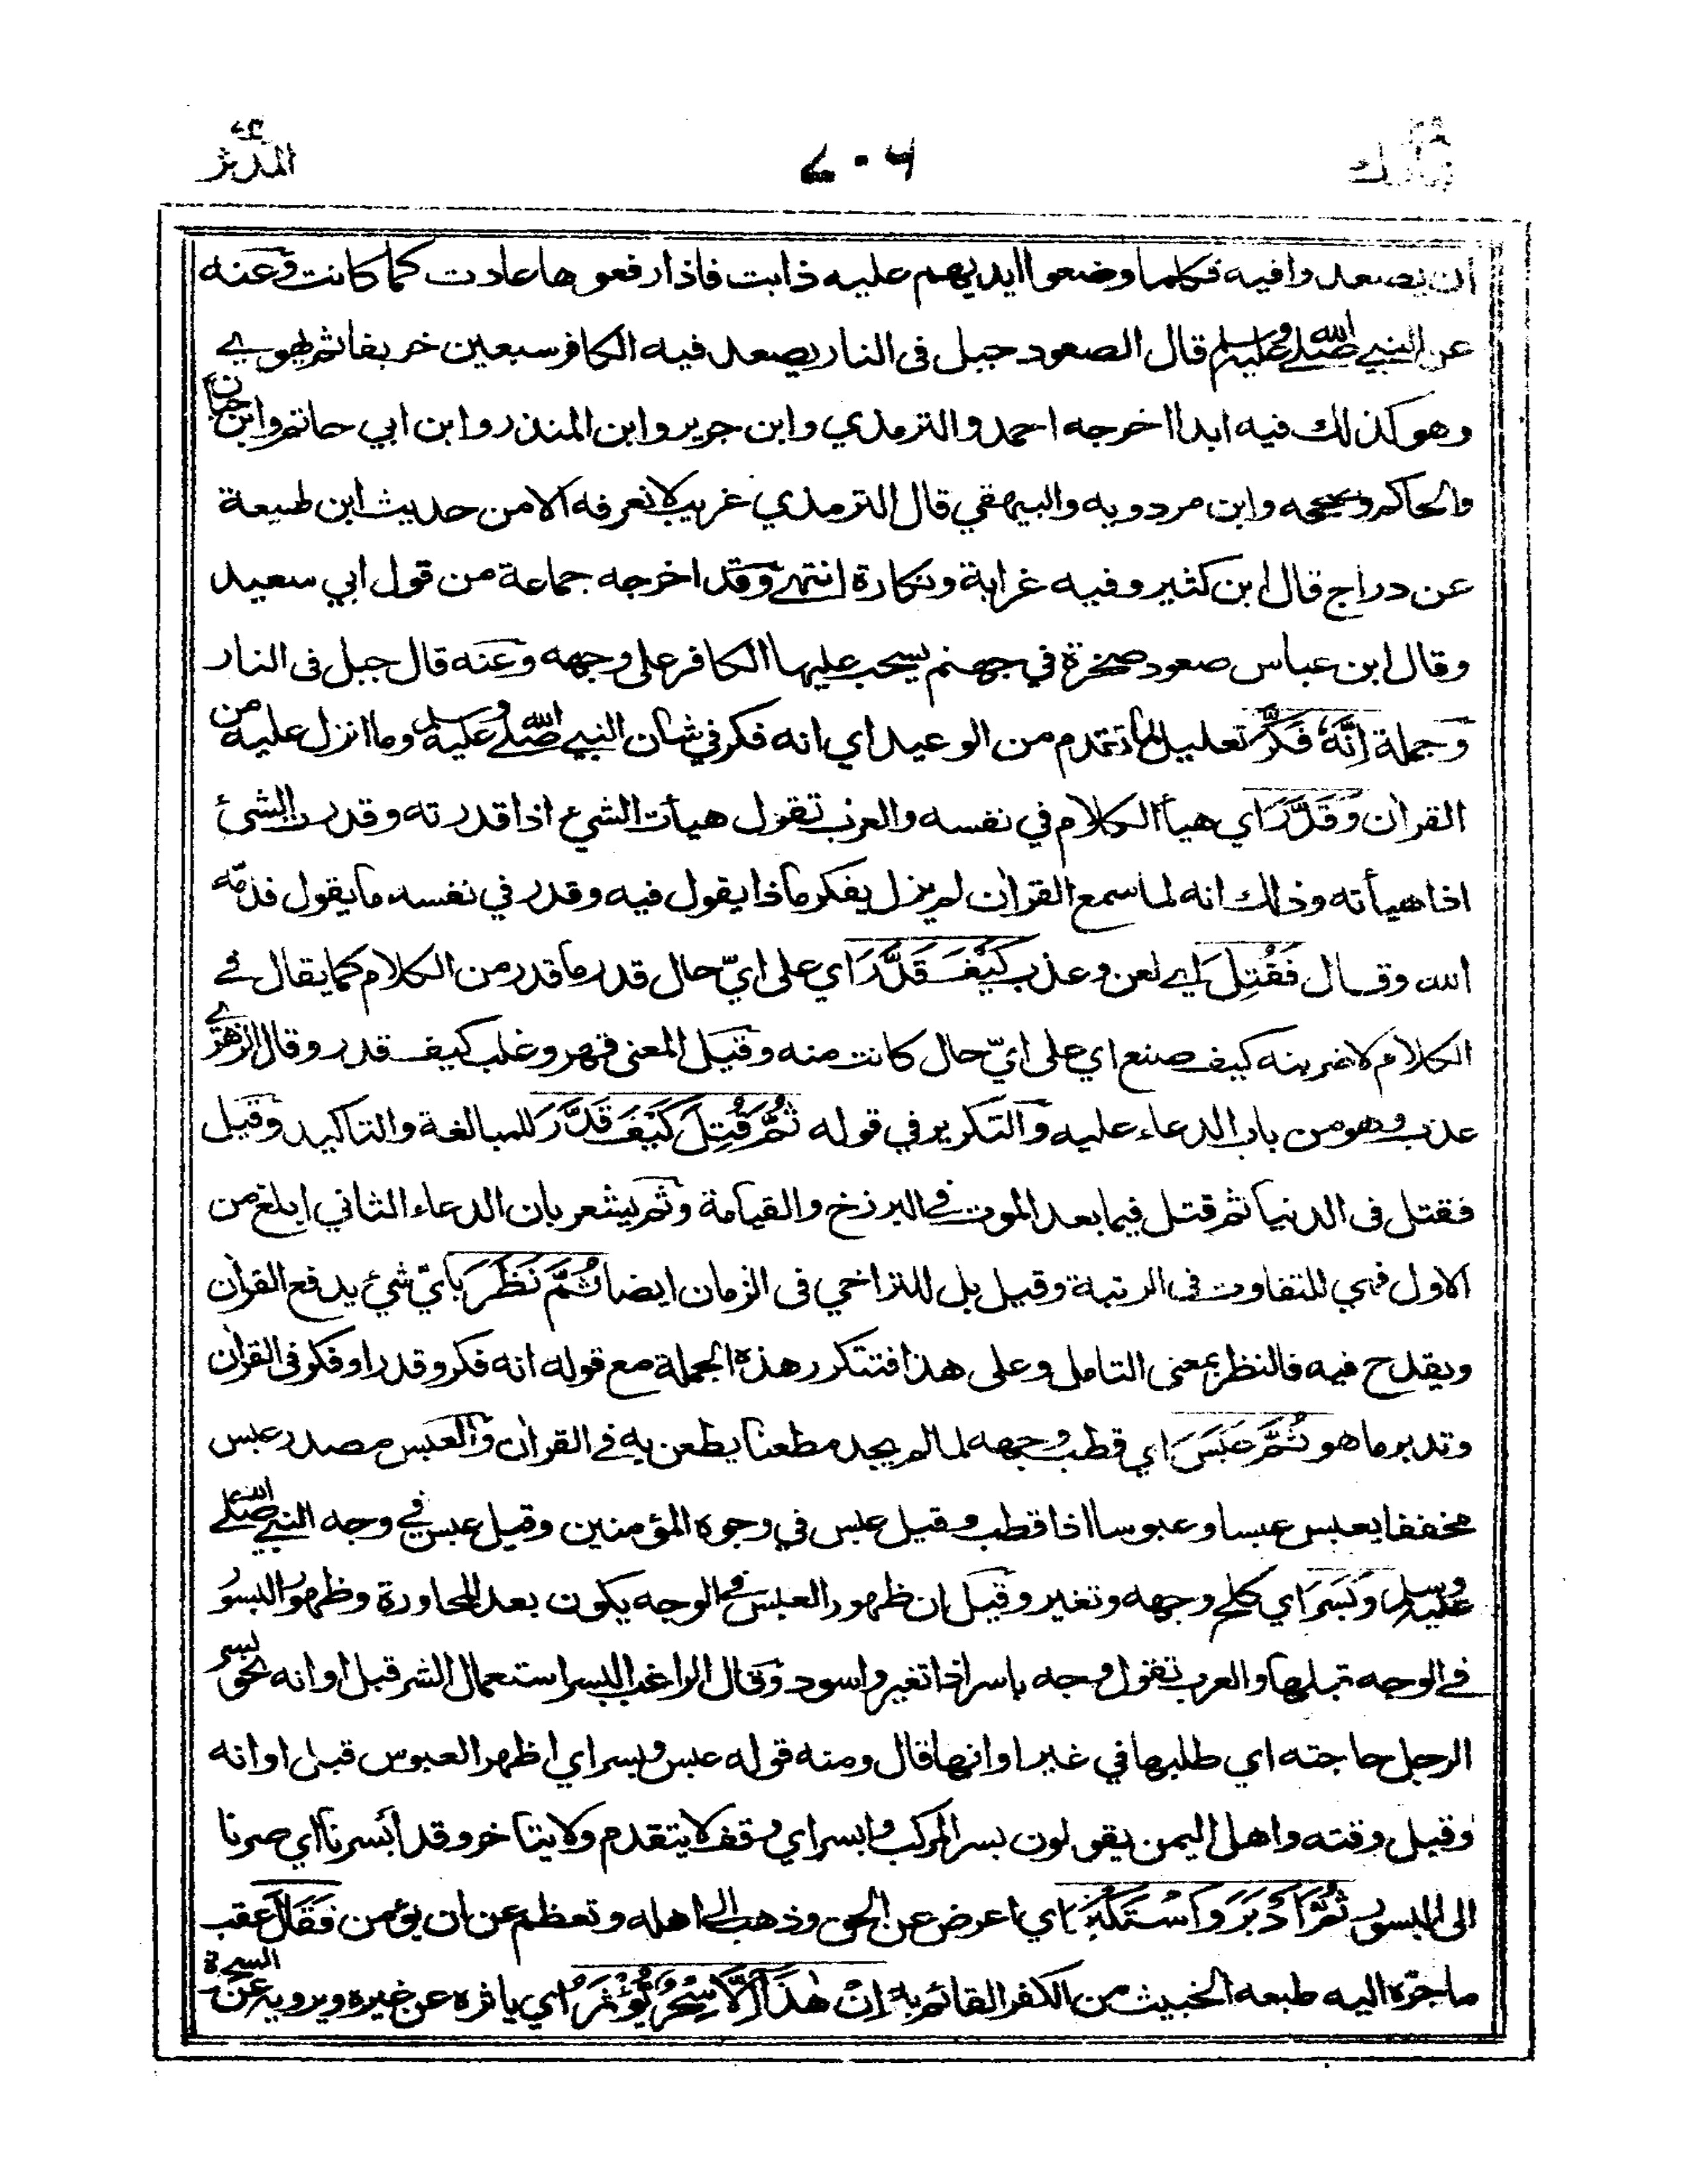 المدثر
٤٠٧
ان يصعدوا فيه فكلما وضعوا ايديهم عليه ذابت فاذا رفعوها عادت كما كانت وعنه
عن النبي صلى الله عليه وسلم قال الصعود جبل فى النار يصعد فيه الكافر سبعين خريفا ثم يهوي
وهو كذلك فيه ابدا اخرجه احمد والترمذي وابن جرير وابن المنذر وابن ابي حاتم وابن حبان
والحاكم وصححه وابن مردويه والبيهقي قال الترمذي غريب لا نعرفه الا من حديث ابن لهيعة
عن دراج قال ابن كثير وفيه غرابة ونكارة انتهى وقد اخرجه جماعة من قول ابي سعيد
وقال ابن عباس صعود صخرة في جهنم يسحب عليها الكافر على وجهه وعنه قال جبل فى النار
وجملة اِنَّهٗ فَكَّرَ تعليل لما تقدم من الوعيد اي انه فكر في شان النبي صلى الله عليه وسلم وما انزل عليه من
القرآن وَقَدَّرَ اي هيأ الكلام في نفسه والعرب تقول هيأت الشيء اذا قدرته وقدرت الشئ
اذا هيأته وذلك انه لما سمع القرآن لم يزل يفكر ماذا يقول فيه وقدر في نفسه ما يقول فذمّه
الله وقال فَقُتِلَ اي لعن وعذب كَيْفَ قَدَّرَ اي على ايّ حال قدر ما قدر من الكلام كما يقال في
الكلام لاضربنه كيف صنع اي على ايّ حال كانت منه وقيل المعنى قهر وغلب كيف قدر وقال الزهري
عذب وهو من باب الدعاء عليه والتكرير في قوله ثُمَّ قُتِلَ كَيْفَ قَدَّرَ للمبالغة والتاكيد وقيل
فقتل فى الدنيا ثم قتل فيما بعد الموت في البرزخ والقيامة وثم يشعر بان الدعاء الثاني ابلغ من
الاول فهي للتفاوت فى الرتبة وقيل بل للتراخي فى الزمان ايضا ثُمَّ نَظَرَ بايّ شيء يدفع القرآن
ويقدح فيه فالنظر بمعنى التامل وعلى هذا فتتكرر هذه الجملة مع قوله انه فكر وقدر او فكر فى القرآن
وتدبر ما هو ثُمَّ عَبَسَ اي قطب وجهه لما لم يجد مطعنا يطعن به في القرآن والعبس مصدر عبس
مخففا يعبس عبسا وعبوسا اذا قطب وقيل عبس في وجوه المؤمنين وقيل عبس في وجه النبي صلى الله
عليه وسلم وَبَسَرَ اي كلح وجهه وتغير وقيل ان ظهور العبس في الوجه يكون بعد المحاورة وظهور البسور
في الوجه قبلها والعرب تقول وجه باسر اذا تغير واسود وقال الراغب البسر استعمال الشر قبل اوانه نحو بسر
الرجل حاجته اي طلبها في غير اوانها قال ومنه قوله عبس وبسر اي اظهر العبوس قبل اوانه
وقبل وقته واهل اليمن يقولون بسر المركب وابسر اي وقف لا يتقدم ولا يتاخر وقد أبسرنا اي صرنا
الى البسور ثُمَّ اَدْبَرَ وَاسْتَكْبَرَ اي اعرض عن الحق وذهب الى اهله وتعظم عن ان يؤمن فَقَالَ عقب
ما جرّه اليه طبعه الخبيث من الكفر القائم به اِنْ هٰذَا اِلَّا سِحْرٌ يُّؤْثَرُ اي ياثره عن غيره ويرويه عن السحرة